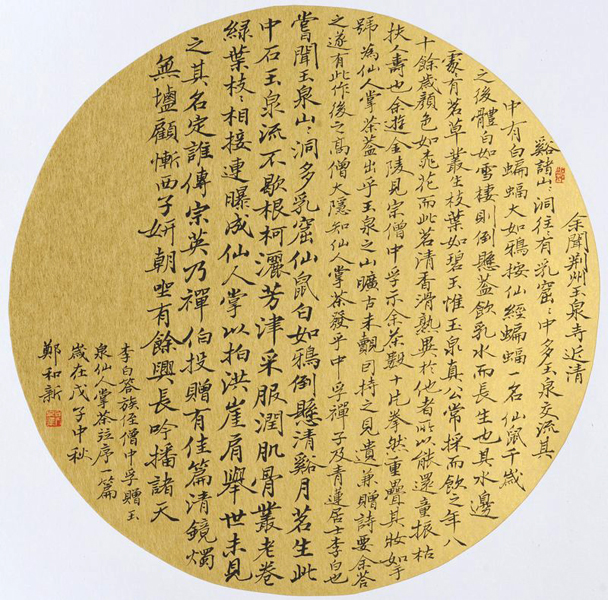 余聞荆州玉泉寺近清
谿諸山〻洞往〻有乳窟〻中多玉泉交流其
中有白蝙蝠大如鴉按仙經蝙蝠名仙鼠千歲
之後體白如雪棲則倒懸蓋飲乳水而長生也其水邊
處〻有茗草叢生枝葉如碧玉惟玉泉真公常採而飲之年八
十餘歲顏色如桃花而此茗清香滑熟異於他者所以能還童振枯
扶人壽也余遊金陵見宗僧中孚示余茶數十片拳然重疊其狀如手
號為仙人掌茶蓋出乎玉泉之山曠古未覿因持之見遺兼贈詩要余答
之遂有此作後之高僧大隱知仙人掌茶發乎中孚禪子及青蓮居士李白也
嘗聞玉泉山〻洞多乳窟仙鼠白如鴉倒懸清谿月茗生此
中石玉泉流不歇根柯灑芳津采服潤肌骨叢老卷
綠葉枝〻相接連曝成仙人掌以拍洪崖肩舉世未見
之其名定誰傳宗英乃禪伯投贈有佳篇清鏡燭
無鹽顧慚西子妍朝坐有餘興長吟播諸天
李白答族侄僧中孚贈玉
泉仙人掌茶並序一篇
歲在戊子中秋
鄭和新